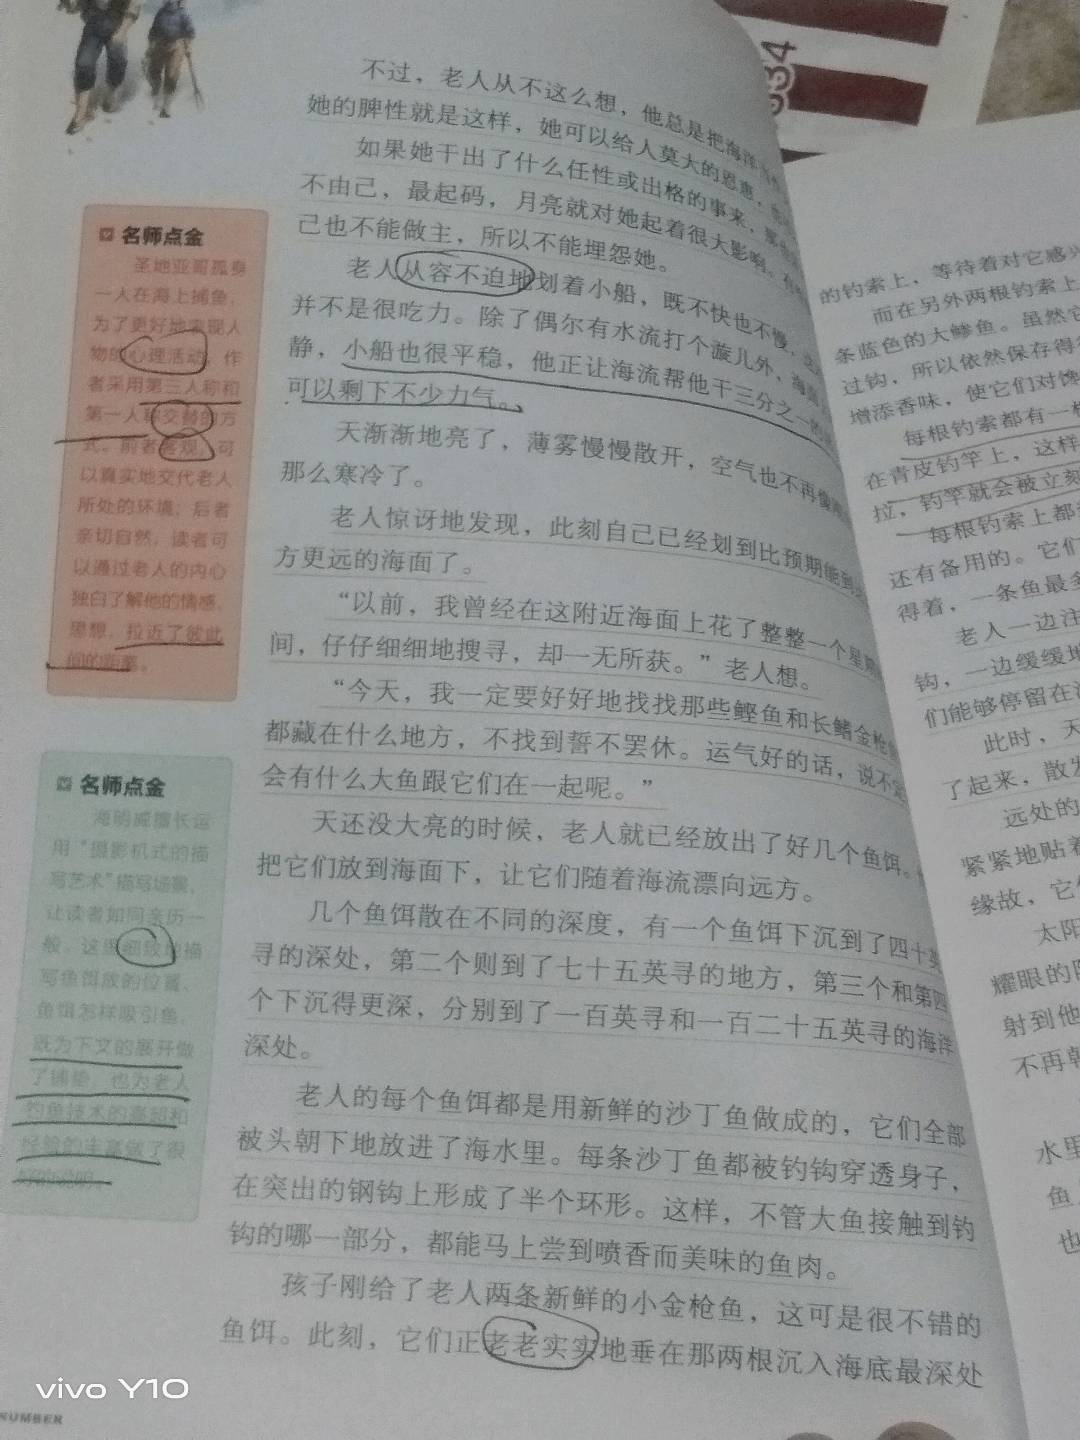 不过，老人从不这么想，他总是把海洋
她的脾性就是这样，她可以给人莫大的恩惠，
如果她干出了什么任性或出格的事来，那
不由己，最起码，月亮就对她起着很大影响。有
己也不能做主，所以不能埋怨她。
老人从容不迫地划着小船，既不快也不慢，
并不是很吃力。除了偶尔有水流打个漩儿外，海面
静，小船也很平稳，他正让海流帮他干三分之一的
可以剩下不少力气。
天渐渐地亮了，薄雾慢慢散开，空气也不再像
那么寒冷了。
老人惊讶地发现，此刻自己已经划到比预期能到
方更远的海面了。
“以前，我曾经在这附近海面上花了整整一个星期
间，仔仔细细地搜寻，却一无所获。”老人想。
“今天，我一定要好好地找找那些鲣鱼和长鳍金枪
都藏在什么地方，不找到誓不罢休。运气好的话，说不定
会有什么大鱼跟它们在一起呢。”
天还没大亮的时候，老人就已经放出了好几个鱼饵。
把它们放到海面下，让它们随着海流漂向远方。
几个鱼饵散在不同的深度，有一个鱼饵下沉到了四十英
寻的深处，第二个则到了七十五英寻的地方，第三个和第四
个下沉得更深，分别到了一百英寻和一百二十五英寻的海洋
深处。
老人的每个鱼饵都是用新鲜的沙丁鱼做成的，它们全部
被头朝下地放进了海水里。每条沙丁鱼都被钓钩穿透身子，
在突出的钢钩上形成了半个环形。这样，不管大鱼接触到钓
钩的哪一部分，都能马上尝到喷香而美味的鱼肉。
孩子刚给了老人两条新鲜的小金枪鱼，这可是很不错的
鱼饵。此刻，它们正老老实实地垂在那两根沉入海底最深处
名师点金
圣地亚哥孤身
一人在海上捕鱼，
为了更好地表现人
物的心理活动，作
者采用第三人称和
第一人称交替的方
式。前者客观，可
以真实地交代老人
所处的环境；后者
亲切自然，读者可
以通过老人的内心
独白了解他的情感、
思想，拉近了彼此
间的距离。
名师点金
海明威擅长运
用“摄影机式的描
写艺术”描写场景，
让读者如同亲历一
般。这里细致地描
写鱼饵放的位置、
鱼饵怎样吸引鱼，
既为下文的展开做
了铺垫，也为老人
钓鱼技术的高超和
经验的丰富做了很
好的说明。
的钓索上，等待着对它感兴
而在另外两根钓索上
条蓝色的大鲹鱼。虽然它
过钩，所以依然保存得
增添香味，使它们对馋
每根钓索都有一
在青皮钓竿上，这样
拉，钓竿就会被立刻
每根钓索上都
还有备用的。它们
得着，一条鱼最
老人一边注
钩，一边缓缓地
们能够停留在
此时，天
了起来，散发
远处的
紧紧地贴着
缘故，它
太阳
耀眼的
射到他
不再
水里
鱼
也
NUMBER
vivo Y10